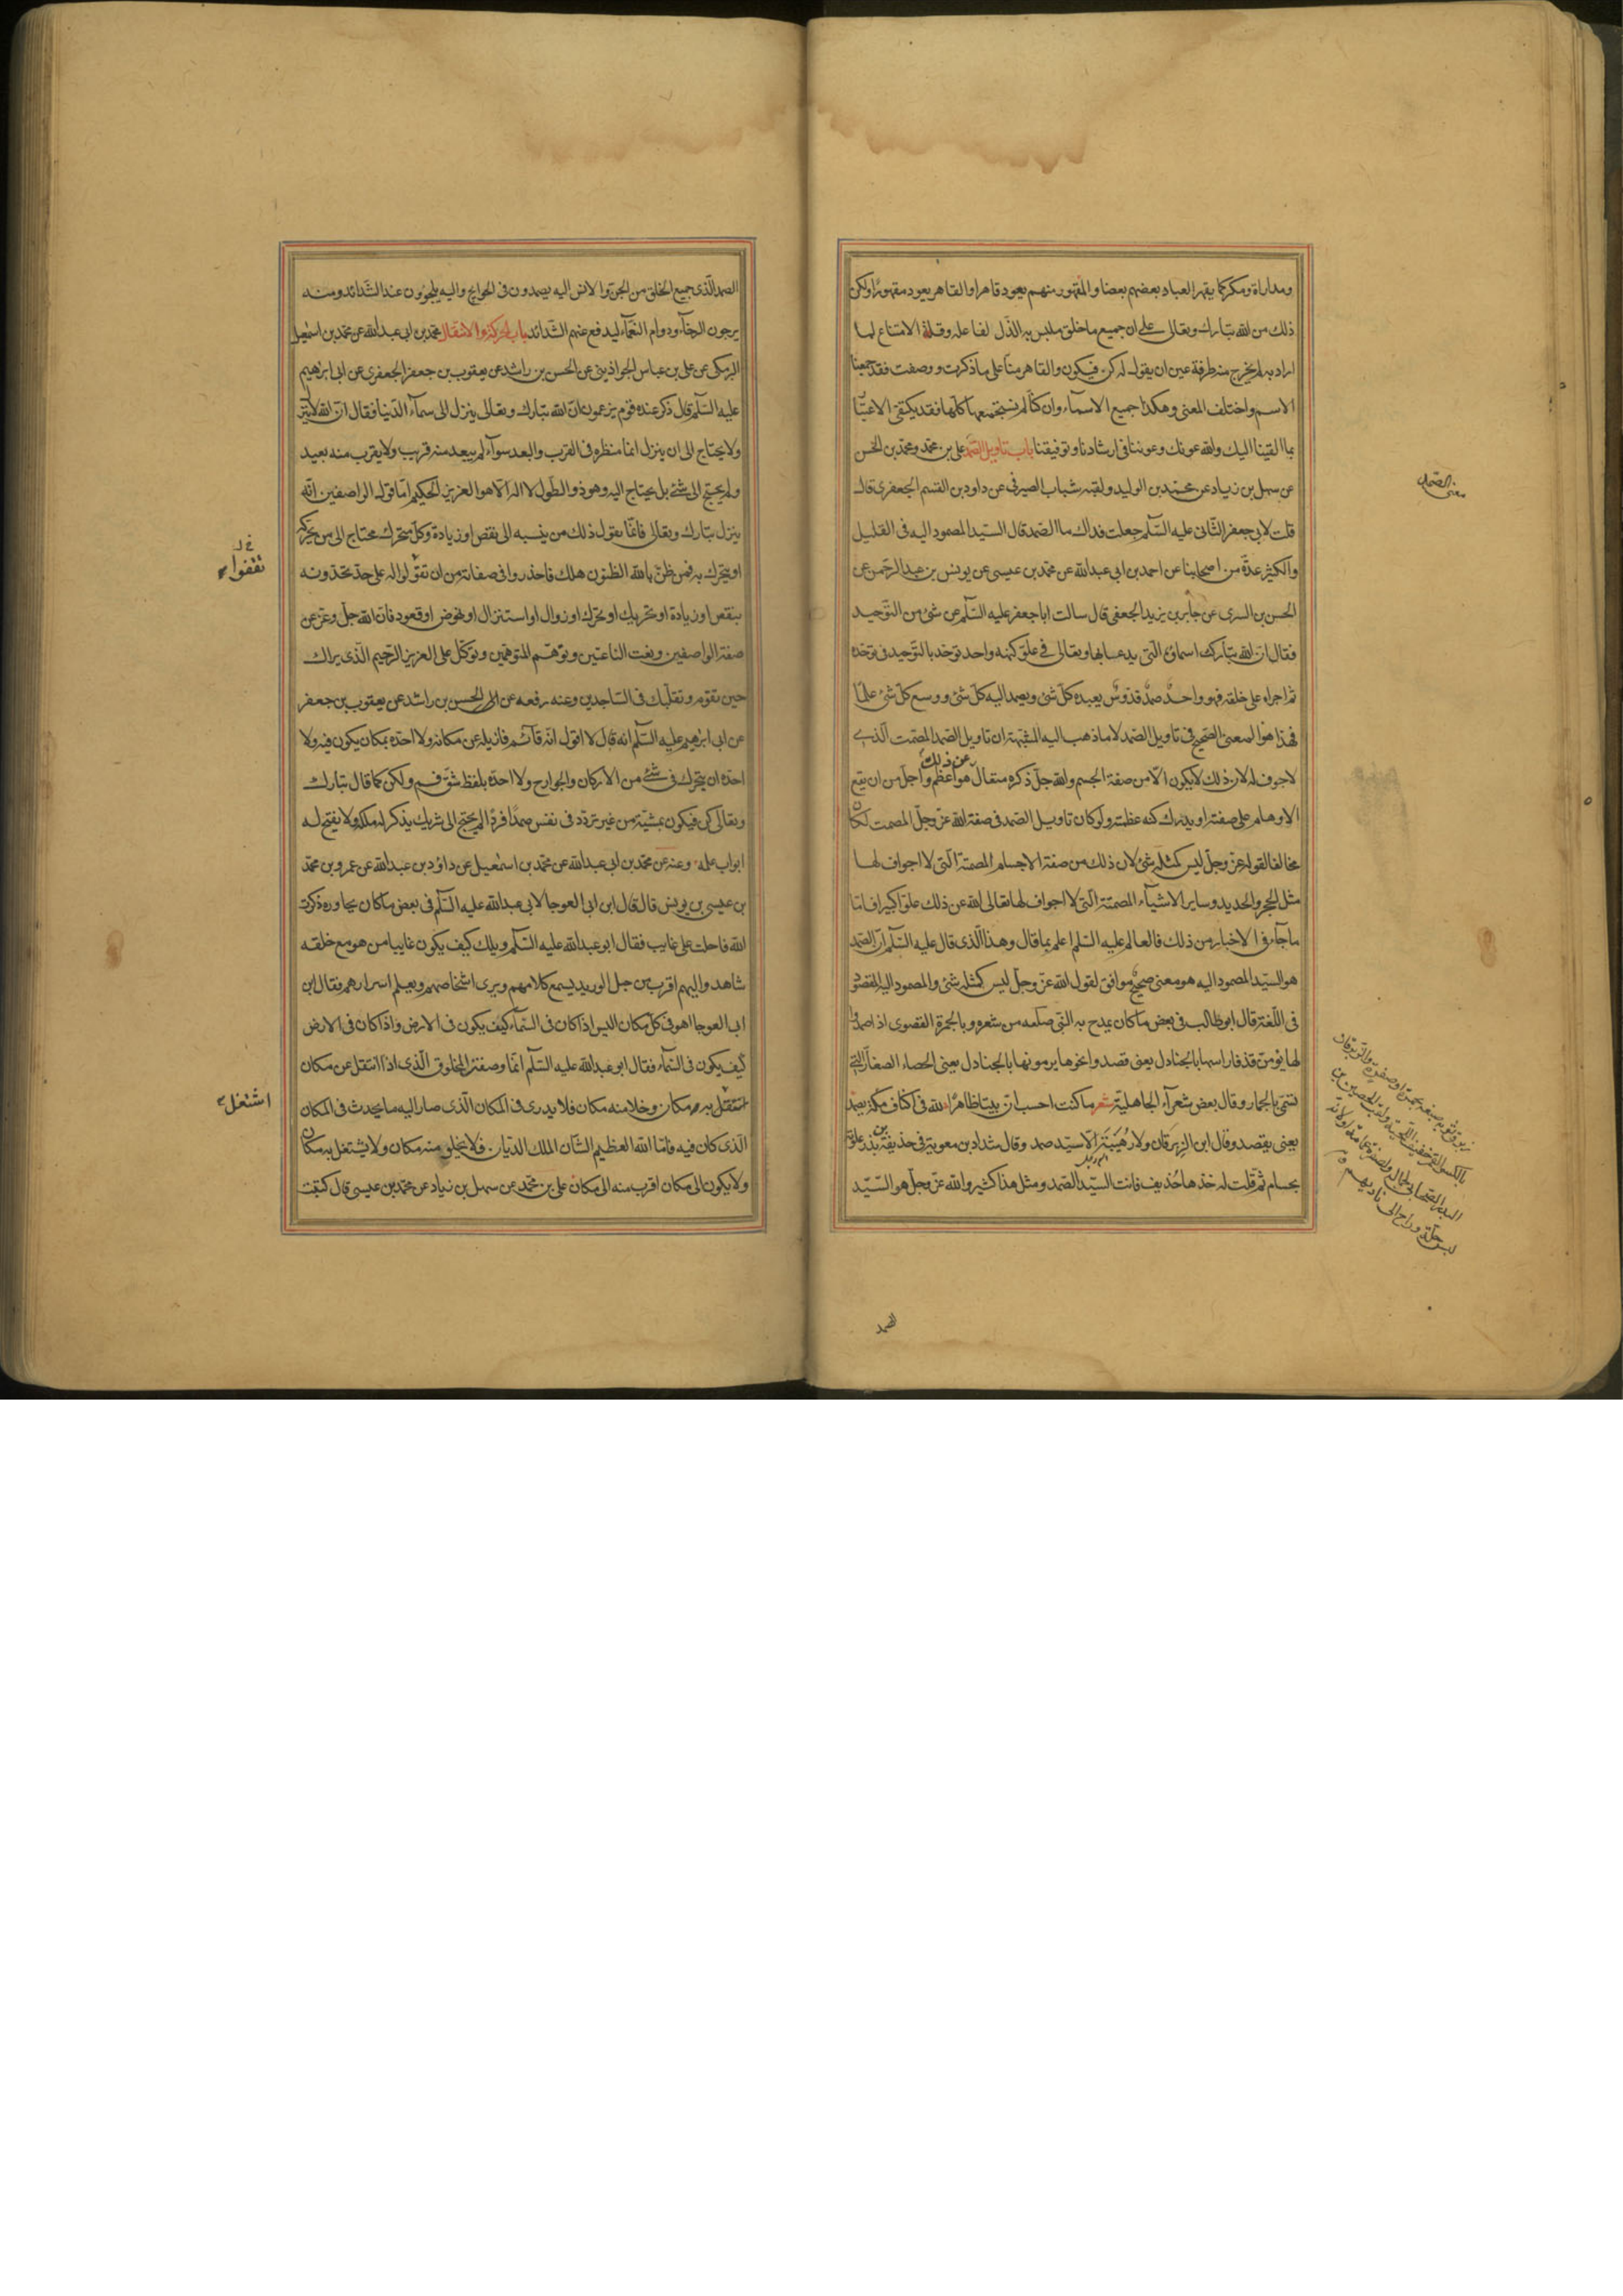 ومداراة ومكر كما يقهر العباد بعضهم بعضا والمقهور منهم يعود قاهرا والقاهر يعود مقهورا ولكن
ذلك من الله تبارك وتعالى على ان جميع ما خلق ملبس به الذل لفاعله وقلة الامتناع لما
اراد به لم يخرج منه طرفة عين ان يقول له كن فيكون والقاهر منا على ما ذكرت ووصفت فقد جمعنا
الاسم واختلف المعنى وهكذا جميع الاسماء وان كنا لم نستجمعها كلها فقد يكتفى الاعتبار
بما القينا اليك والله عونك وعوننا فى ارشادنا وتوفيقنا باب تاويل الصمد على بن محمد ومحمد بن الحسن
عن سهل بن زياد عن محمد بن الوليد ولقبه شباب الصيرفى عن داود بن القسم الجعفرى قال
قلت لابى جعفر الثانى عليه السلم جعلت فداك ما الصمد قال السيد المصمود اليه فى القليل
والكثير عدة من اصحابنا عن احمد بن ابى عبدالله عن محمد بن عيسى عن يونس بن عبدالرحمن عن
الحسن بن السرى عن جابر بن يزيد الجعفى قال سالت اباجعفر عليه السلم عن شئ من التوحيد
فقال ان الله تبارك اسماؤه التى يدعا بها وتعالى فى علو كنهه واحد توحد بالتوحيد فى توحده
ثم اجراه على خلقه فهو واحد صمد قدوس يعبده كل شئ ويصمد اليه كل شئ ووسع كل شئ علما
فهذا هو المعنى الصحيح فى تاويل الصمد لا ما ذهب اليه المشبهة ان تاويل الصمد المصمت الذى
لاجوف له لان ذلك لايكون الا من صفة الجسم والله جل ذكره متعال عن ذلك هو اعظم واجل من ان يقع
الاوهام على صفته او يدرك كنه عظمته ولو كان تاويل الصمد فى صفة الله عز وجل المصمت لكان
مخالفا لقوله عز وجل ليس كمثله شئ لان ذلك من صفة الاجسام المصمتة التى لا اجواف لها
مثل الحجر والحديد وساير الاشياء المصمتة التى لا اجواف لها تعالى الله عن ذلك علوا كبيرا فاما
ما جاء فى الاخبار من ذلك فالعالم عليه السلم اعلم بما قال وهذا الذى قال عليه السلم ان الصمد
هو السيد المصمود اليه هو معنى صحيح موافق لقول الله عز وجل ليس كمثله شئ والمصمود اليه المقصود
فى اللغة قال ابوطالب فى بعض ما كان يمدح به النبى صلعم من شعره وبالجمرة القصوى اذا صمدوا
لها يؤمون قذفا راسها بالجنادل يعنى قصدوا نحوها يرمونها بالجنادل يعنى الحصاء الصغار التى
تسمى بالجمار وقال بعض شعراء الجاهلية شعر ما كنت احسب ان بيتا ظاهرا لله فى اكناف مكة يصمد
يعنى يقصد وقال ابن الزبرقان ولا رهيبة الا سيد صمد وقال شداد بن معوية فى حذيفة بن بدر علوته
بحسام ثم قلت له خذها حذيف فانت السيد الصمد ومثل هذا كثير والله عز وجل هو السيد
معنى الصمد
الصمد
الصمد الذى جميع الخلق من الجن والانس اليه يصمدون فى الحوايج واليه يلجؤون عند الشدائد ومنه
يرجون الرخاء ودوام النعماء ليدفع عنهم الشدائد باب الحركة والانتقال محمد بن ابى عبدالله عن محمد بن اسمعيل
البرمكى عن على بن عباس الجراذينى عن الحسن بن راشد عن يعقوب بن جعفر الجعفرى عن ابى ابراهيم
عليه السلم قال ذكر عنده قوم يزعمون ان الله تبارك وتعالى ينزل الى سماء الدنيا فقال ان الله لاينزل
ولايحتاج الى ان ينزل انما منظره فى القرب والبعد سواء لم يبعد منه قريب ولا يقرب منه بعيد
ولم يحتج الى شئ بل يحتاج اليه وهو ذو الطول لا اله الا هو العزيز الحكيم اما قول الواصفين انه
ينزل تبارك وتعالى فانما يقول ذلك من ينسبه الى نقص او زيادة وكل متحرك محتاج الى من يحركه
او يتحرك به فمن ظن بالله الظنون هلك فاحذروا فى صفاته من ان تقولوا له على حد تحدونه
بنقص او زيادة او تحريك او تحرك او زوال او استنزال او نهوض او قعود فان الله جل وعز عن
صفة الواصفين ونعت الناعتين وتوهم المتوهمين وتوكل على العزيز الرحيم الذى يراك
حين تقوم وتقلبك فى الساجدين وعنه رفعه عن الحسن بن راشد عن يعقوب بن جعفر
عن ابى ابرهيم عليه السلم انه قال لا اقول انه قائم فازيله عن مكانه ولا احده بمكان يكون فيه ولا
احده ان يتحرك فى شئ من الاركان والجوارح ولا احده بلفظ شق فم ولكن كما قال تبارك
وتعالى كن فيكون بمشيته من غير تردد فى نفس صمدا فردا لم يحتج الى شريك يذكر له ملكه ولا يفتح له
ابواب علمه وعنه عن محمد بن ابى عبدالله عن محمد بن اسمعيل عن داود بن عبدالله عن عمرو بن محمد
بن عيسى بن يونس قال قال ابن ابى العوجا لابى عبدالله عليه السلم فى بعض ما كان يحاوره ذكرت
الله فاحلت على غايب فقال ابوعبدالله عليه السلم ويلك كيف يكون غايبا من هو مع خلقه
شاهد واليهم اقرب من حبل الوريد يسمع كلامهم ويرى اشخاصهم ويعلم اسرارهم فقال ابن
ابى العوجا اهو فى كل مكان اليس اذا كان فى السماء كيف يكون فى الارض واذا كان فى الارض
كيف يكون فى السماء فقال ابوعبدالله عليه السلم انما وصفت المخلوق الذى اذا انتقل عن مكان
اشتغل به مكان وخلا منه مكان فلا يدرى فى المكان الذى صار اليه ما يحدث فى المكان
الذى كان فيه فاما الله العظيم الشان الملك الديان فلا يخلو منه مكان ولا يشتغل به مكان
ولا يكون الى مكان اقرب منه الى مكان على بن محمد عن سهل بن زياد عن محمد بن عيسى قال كتبت
تقفوا
اشتغل